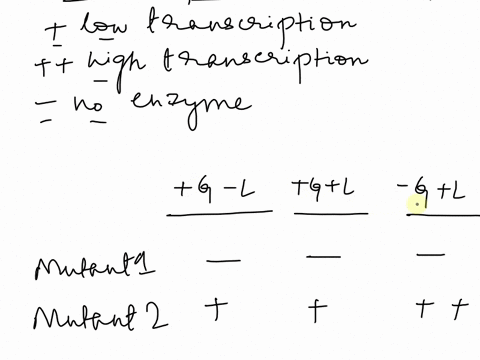 + low transcription
++ high transcription
- no enzyme
+G -L +G+L -G +L
Mutant 1 — — —
Mutant 2 + + + +